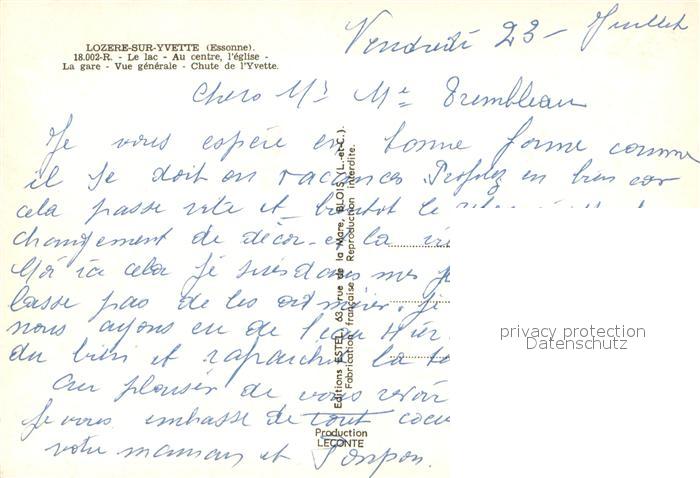 LOZERE-SUR-YVETTE (Essonne).
18.002-R. - Le lac - Au centre, l'église -
La gare - Vue générale - Chute de l'Yvette.
Vendredi 23 - Juillet
Chers Mr Me Trembleau
Je vous espère en bonne forme comme
il se doit en vacances. Profitez en bien car
cela passe vite et bientôt le
changement de décor et la
ici cela je suis dans mes
lasse pas de les admirer. Je
nous ayons eu de l'eau Hier
du bien et rafraichi la
Au plaisir de vous revoir
Je vous embrasse de tout coeur
votre maman et Pompon.
Editions ESTEL, 63, rue de la Mare, BLOIS (L.-et-C.).
Fabrication française. Reproduction interdite.
Production
LECONTE
privacy protection
Datenschutz